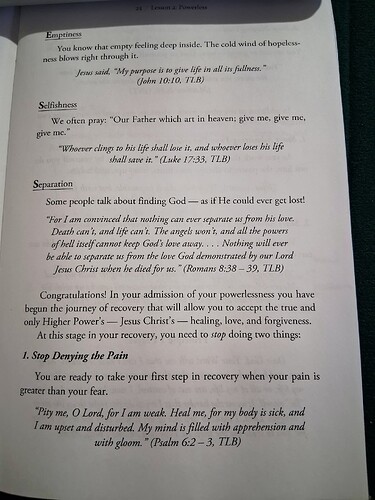 22 / Lesson 2: Powerless
Emptiness
You know that empty feeling deep inside. The cold wind of hopeless-
ness blows right through it.
Jesus said, "My purpose is to give life in all its fullness."
(John 10:10, TLB)
Selfishness
We often pray: "Our Father which art in heaven; give me, give me,
give me."
"Whoever clings to his life shall lose it, and whoever loses his life
shall save it." (Luke 17:33, TLB)
Separation
Some people talk about finding God — as if He could ever get lost!
"For I am convinced that nothing can ever separate us from his love.
Death can't, and life can't. The angels won't, and all the powers
of hell itself cannot keep God's love away. . . . Nothing will ever
be able to separate us from the love God demonstrated by our Lord
Jesus Christ when he died for us." (Romans 8:38 – 39, TLB)
Congratulations! In your admission of your powerlessness you have
begun the journey of recovery that will allow you to accept the true and
only Higher Power's — Jesus Christ's — healing, love, and forgiveness.
At this stage in your recovery, you need to stop doing two things:
1. Stop Denying the Pain
You are ready to take your first step in recovery when your pain is
greater than your fear.
"Pity me, O Lord, for I am weak. Heal me, for my body is sick, and
I am upset and disturbed. My mind is filled with apprehension and
with gloom." (Psalm 6:2 – 3, TLB)